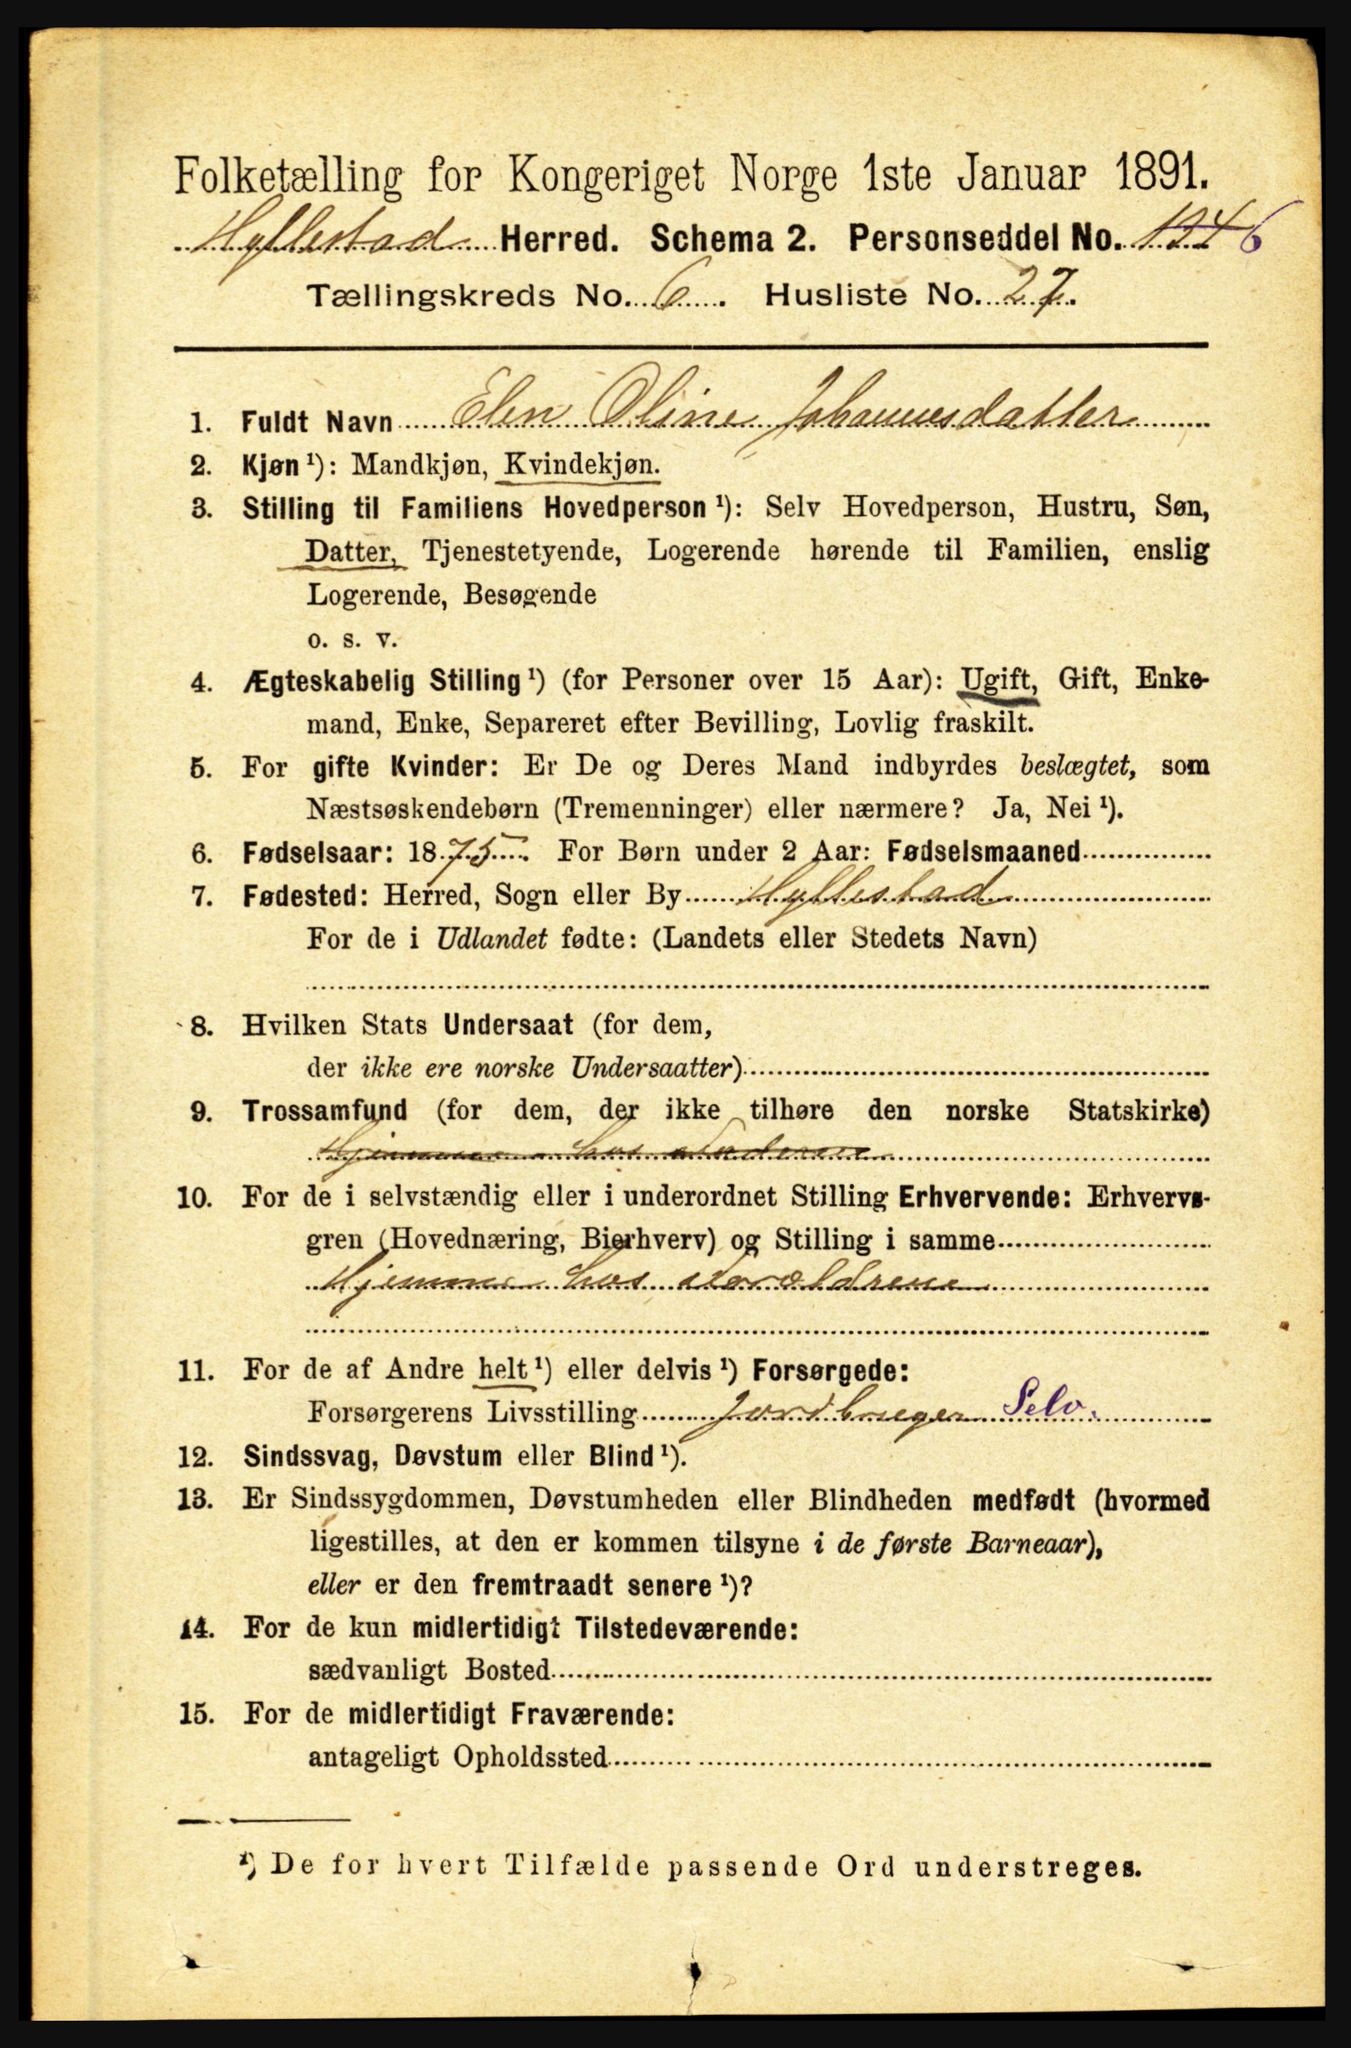 Folketælling for Kongeriget Norge 1ste Januar 1891.
Hyllestad Herred. Schema 2. Personseddel No. 1246
Tællingskreds No. 6. Husliste No. 27.
1. Fuldt Navn Elen Oline Johannesdatter
2. Kjøn ¹): Mandkjøn, Kvindekjøn.
3. Stilling til Familiens Hovedperson ¹): Selv Hovedperson, Hustru, Søn,
Datter, Tjenestetyende, Logerende hørende til Familien, enslig
Logerende, Besøgende
o. s. v.
4. Ægteskabelig Stilling ¹) (for Personer over 15 Aar): Ugift, Gift, Enke-
mand, Enke, Separeret efter Bevilling, Lovlig fraskilt.
5. For gifte Kvinder: Er De og Deres Mand indbyrdes beslægtet, som
Næstsøskendebørn (Tremenninger) eller nærmere? Ja, Nei ¹).
6. Fødselsaar: 1875. For Børn under 2 Aar: Fødselsmaaned
7. Fødested: Herred, Sogn eller By Hyllestad
For de i Udlandet fødte: (Landets eller Stedets Navn)
8. Hvilken Stats Undersaat (for dem,
der ikke ere norske Undersaatter)
9. Trossamfund (for dem, der ikke tilhøre den norske Statskirke)
Hjemme hos
10. For de i selvstændig eller i underordnet Stilling Erhvervende: Erhvervs-
gren (Hovednæring, Bierhverv) og Stilling i samme
Hjemme hos Forældrene
11. For de af Andre helt ¹) eller delvis ¹) Forsørgede:
Forsørgerens Livsstilling Jordbruger Selv.
12. Sindssvag, Døvstum eller Blind ¹).
13. Er Sindssygdommen, Døvstumheden eller Blindheden medfødt (hvormed
ligestilles, at den er kommen tilsyne i de første Barneaar),
eller er den fremtraadt senere ¹)?
14. For de kun midlertidigt Tilstedeværende:
sædvanligt Bosted
15. For de midlertidigt Fraværende:
antageligt Opholdssted
¹) De for hvert Tilfælde passende Ord understreges.